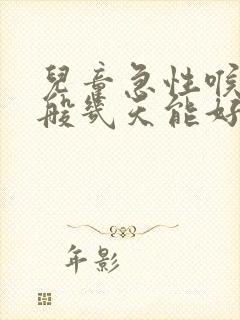 兒童急性喉
般幾天能好
年影